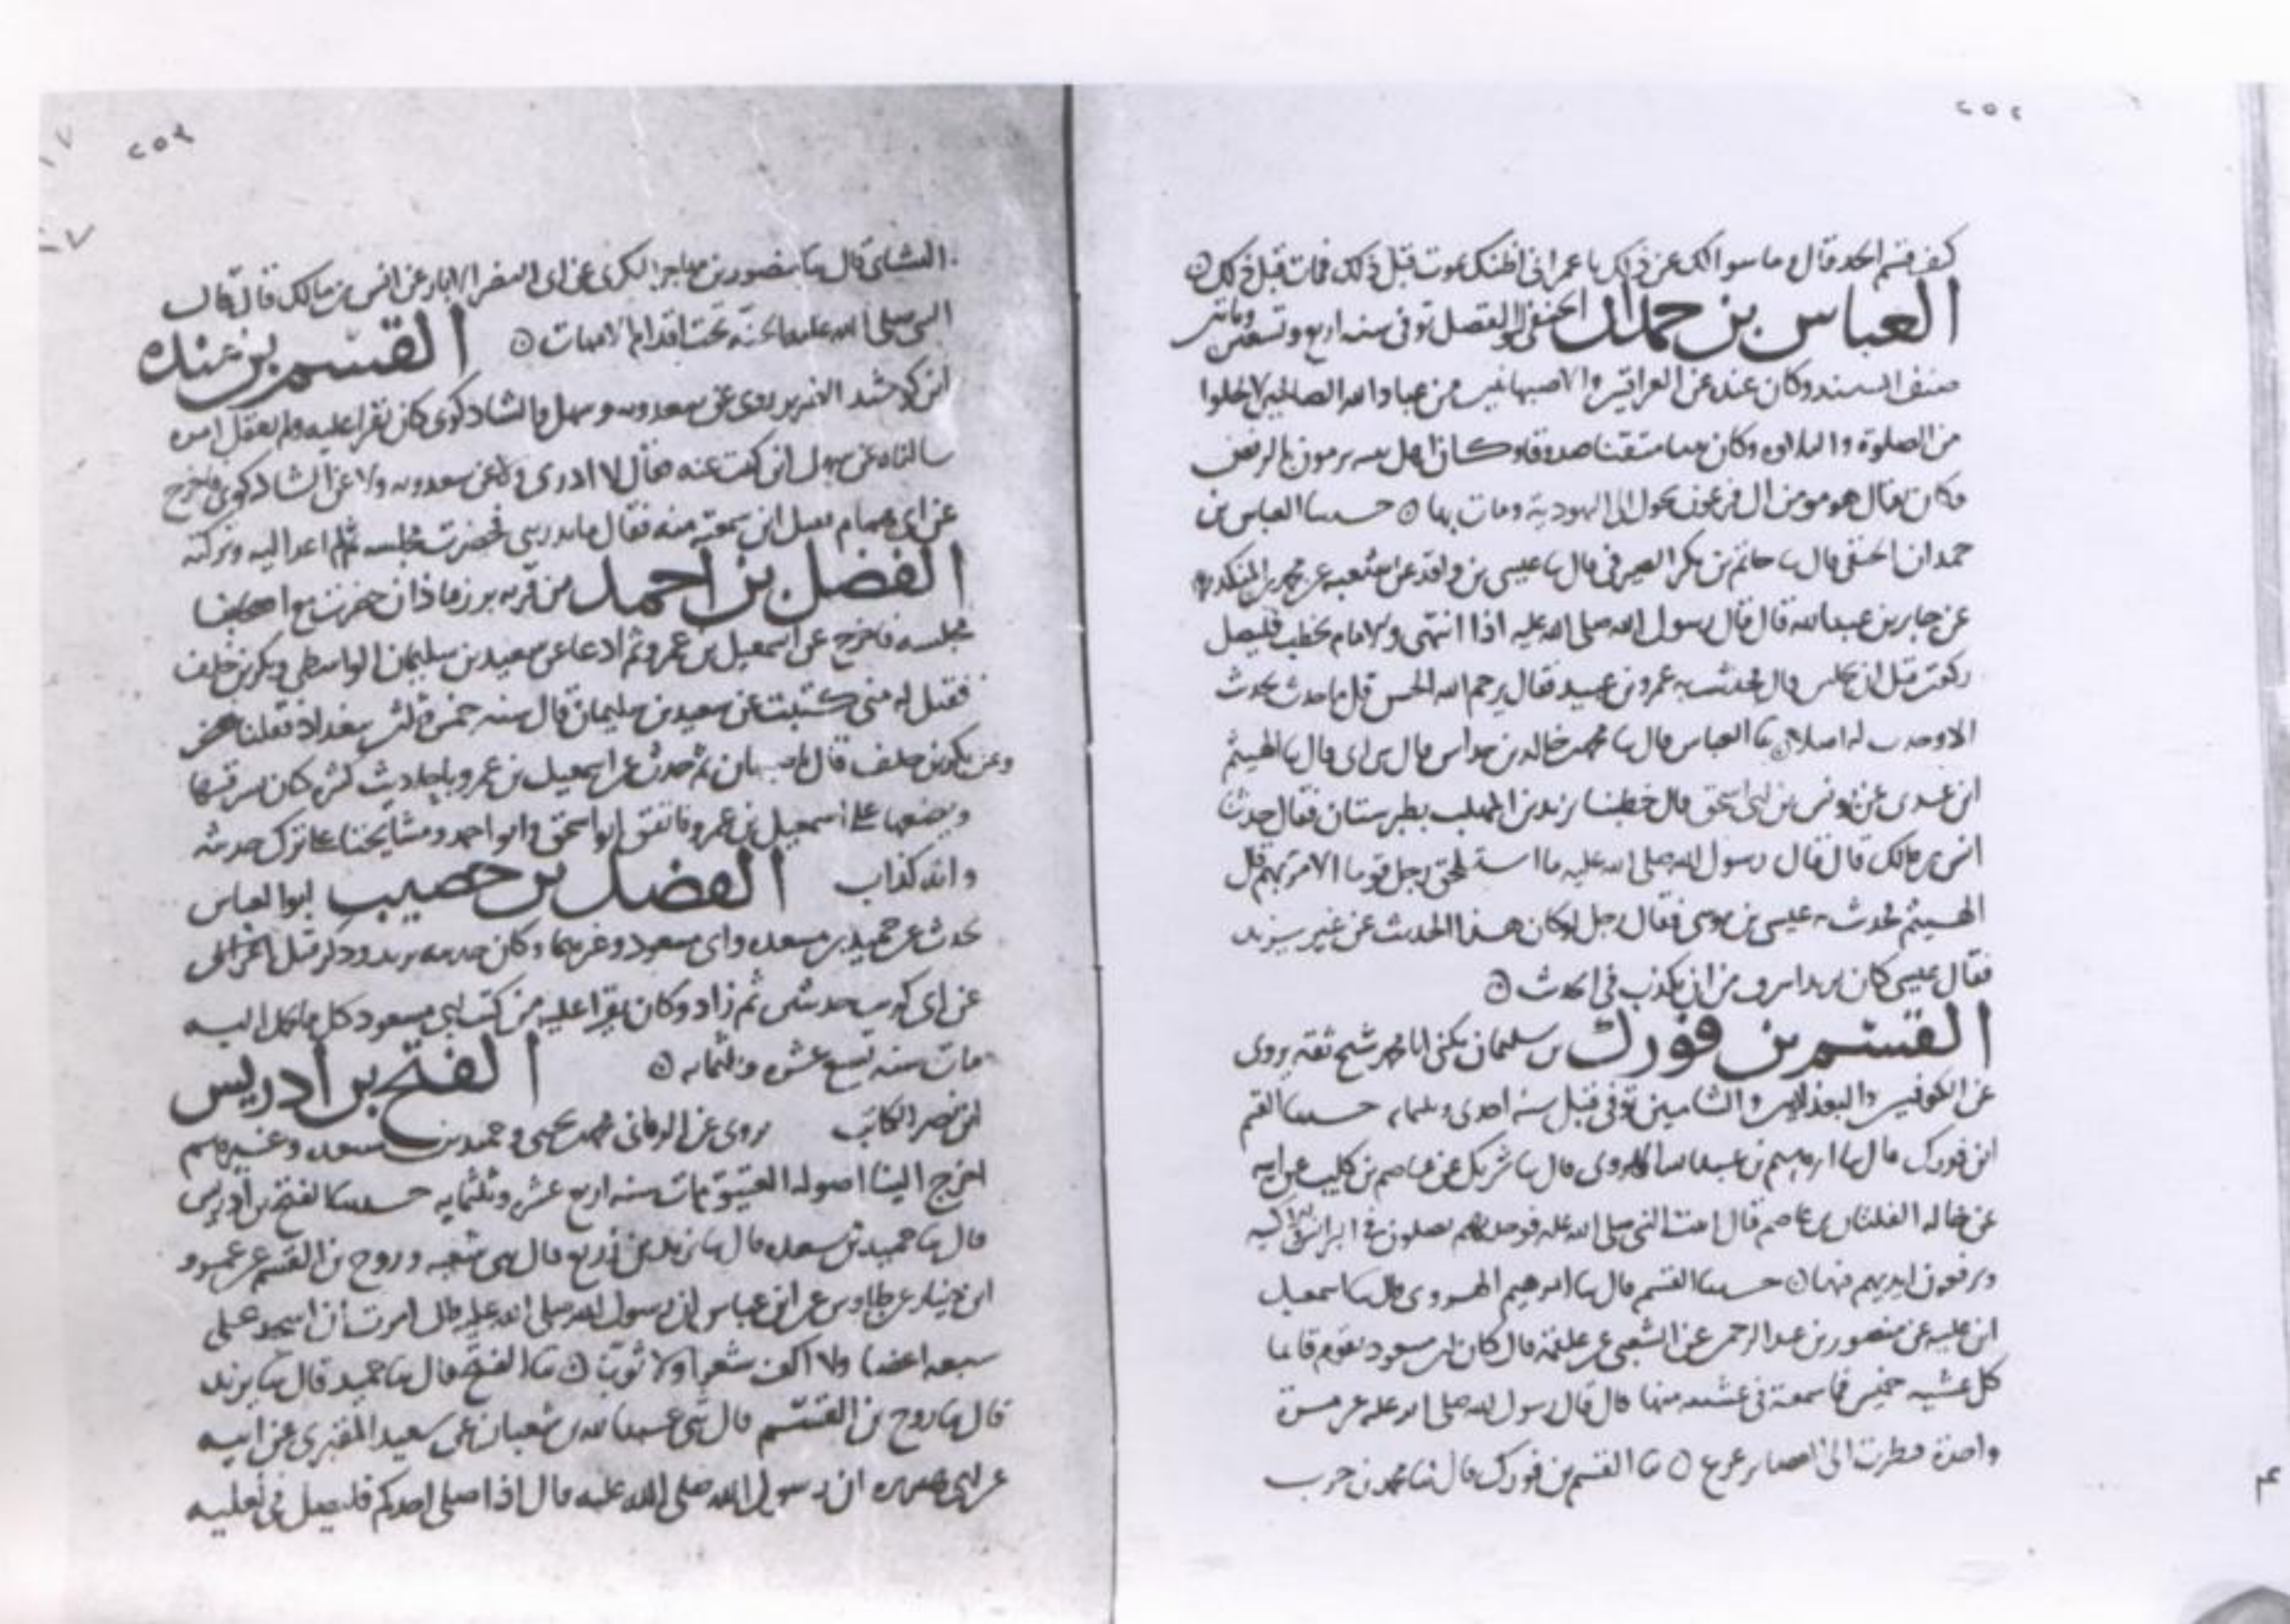 ٢٥٢
قسم الجد قال وما سوالك عن ذلك يا عمر انى اظنك تموت قبل ذلك فمات قبل ذلك
العباس بن حمدان الحنفى ابو الفضل توفى سنه اربع وتسعين ومائتى
صنف المسند وكان عنده عن العراقيين والاصبهانيين من عباد الله الصالحين لا يخلوا
من الصلوة والتلاوه وكان متقنا صدوقا وكان اهل يرمون بالرفض
فكان يقال هو مومن ال فرعون تحول الى اليهودية ومات بها حدثنا العباس بن
حمدان الحنفى قال ثنا حاتم بن بكر الصيرفى قال ثنا عيسى بن واقد عن شعبه عن محمد بن المنكدر
عن جابر بن عبدالله قال قال رسول الله صلى الله عليه اذا انتهى والامام يخطب فليصل
ركعتين قبل ان يجلس قال فحدثت به عمرو بن عبيد فقال يرحم الله الحسن قل ما حدث بحديث
الا وجدت له اصلا ثنا العباس قال ثنا محمد بن خالد بن خداش قال ثنى ابى قال ثنا الهيثم
ابن عدى عن يونس بن ابى اسحق قال خطبنا يزيد بن المهلب بطبرستان فقال حدثنا
انس بن مالك قال قال رسول الله صلى الله عليه ما رجل قوما الا قال
الهيثم فحدثت به عيسى بن موسى فقال رجل لو كان هذا الحديث عن غير يزيد
فقال عيسى كان يزيد اسرف من ان يكذب فى الحديث
القسم بن فورك بن سليمان يكنى ابا محمد شيخ ثقه يروى
عن الكوفيين والبغداديين والشاميين توفى قبل سنه احدى وثلثمايه حدثنا القسم
ابن فورك قال ثنا ابرهيم بن عبدالله الهروى قال ثنا شريك عن عاصم بن كليب عن ابيه
عن خاله الفلتان بن عاصم قال اتيت النبى صلى الله عليه فوجدتهم يصلون فى البرانس والاكسيه
ويرفعون ايديهم فيها حدثنا القسم قال ثنا ابرهيم الهروى قال ثنا اسمعيل
ابن عليه عن منصور بن عبد الرحمن عن الشعبى عن علقمه قال كان ابن مسعود يقوم قائما
كل عشيه خميس فما سمعته فى عشيه منها قال قال رسول الله صلى الله عليه غير مرة
واحدة فنظرت الى ثنا القسم بن فورك قال ثنا محمد بن حرب
٢٥٩
النشائى قال ثنا منصور بن مهاجر البكرى عن ابى النضر الابار عن انس بن مالك قال قال
النبى صلى الله عليه الجنة تحت اقدام الامهات القسم بن منده
ابن كوشيد الضرير يروى عن سعدويه وسهل والشاذكونى كان يقرا عليه ولم يعقل امره
سالناه عن سهل اين كتبت عنه فقال لا ادرى ولا عن سعدويه ولا عن الشاذكونى فاخرج
عن ابى همام فقيل اين سمعته منه فقال ما يدرينى فحضرت مجلسه ثم لم اعد اليه وتركته
الفضل بن احمد من قريه برزماذان حضرت مع اصحابنا
مجلسه فاخرج عن اسمعيل بن عمرو ثم ادعا عن سعيد بن سليمان الواسطى وبكر بن خلف
فقيل له متى كتبت عن سعيد بن سليمان قال سنه خمس وثلثين ببغداد فقلنا
وعن بكر بن خلف قال باصبهان ثم حدث عن اسمعيل بن عمرو باحاديث كثيره كان سرقها
ويضعها على اسمعيل بن عمرو فاتفق ابو اسحق وابو احمد ومشايخنا على ترك حديثه
وانه كذاب الفضل بن خصيب ابو العباس
حدث عن حميد بن مسعده وابى مسعود وغيرهما وكان حديثه يزيد
عن ابى كريب حديثين ثم زاد وكان يقرا عليه من كتب ابى مسعود كل ما يحمل اليه
مات سنه تسع عشره وثلثمايه الفتح بن ادريس
ابن نصر الكاتب يروى عن الزمانى محمد بن يحيى وحميد بن مسعده وغيرهم
اخرج الينا اصوله العتيق مات سنه اربع عشره وثلثمايه حدثنا الفتح بن ادريس
قال ثنا حميد بن مسعده قال ثنا يزيد بن زريع قال ثنى شعبه وروح بن القسم عن عمرو
ابن دينار عن طاوس عن ابن عباس ان رسول الله صلى الله عليه قال امرت ان اسجد على
سبعه اعضا ولا اكف شعرا ولا ثوبا ثنا الفتح قال ثنا حميد قال ثنا يزيد
قال ثنا روح بن القسم قال ثنى عبيد الله بن عن سعيد المقبرى عن ابيه
عن ابى هريره ان رسول الله صلى الله عليه قال اذا صلى احدكم فليصل فى نعليه